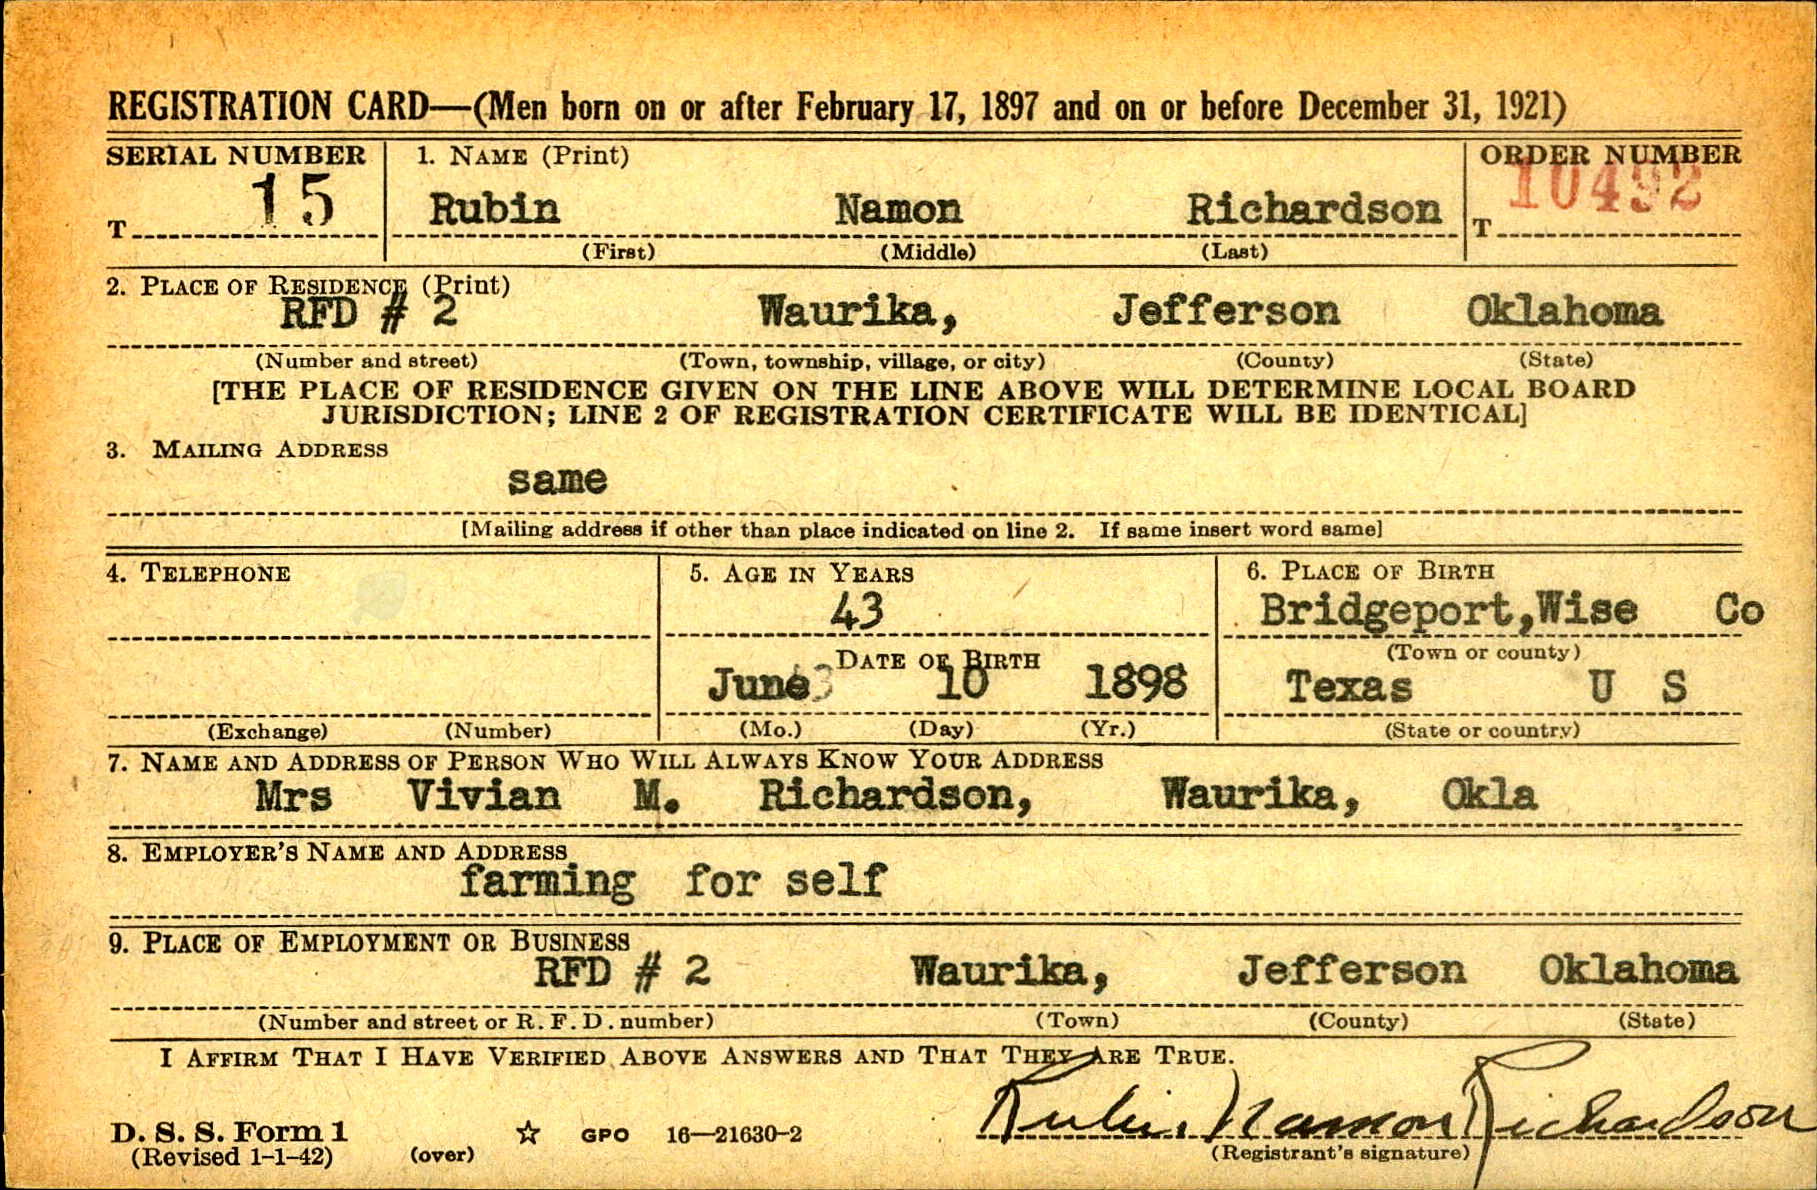 REGISTRATION CARD—(Men born on or after February 17, 1897 and on or before December 31, 1921)
SERIAL NUMBER 1. NAME (Print) ORDER NUMBER
T 15 Rubin Namon Richardson T 10492
(First) (Middle) (Last)
2. PLACE OF RESIDENCE (Print)
RFD # 2 Waurika, Jefferson Oklahoma
(Number and street) (Town, township, village, or city) (County) (State)
[THE PLACE OF RESIDENCE GIVEN ON THE LINE ABOVE WILL DETERMINE LOCAL BOARD
JURISDICTION; LINE 2 OF REGISTRATION CERTIFICATE WILL BE IDENTICAL]
3. MAILING ADDRESS
same
[Mailing address if other than place indicated on line 2. If same insert word same]
4. TELEPHONE 5. AGE IN YEARS 6. PLACE OF BIRTH
43 Bridgeport,Wise Co
DATE OF BIRTH (Town or county)
June 10 1898 Texas U S
(Exchange) (Number) (Mo.) (Day) (Yr.) (State or country)
7. NAME AND ADDRESS OF PERSON WHO WILL ALWAYS KNOW YOUR ADDRESS
Mrs Vivian M. Richardson, Waurika, Okla
8. EMPLOYER'S NAME AND ADDRESS
farming for self
9. PLACE OF EMPLOYMENT OR BUSINESS
RFD # 2 Waurika, Jefferson Oklahoma
(Number and street or R. F. D. number) (Town) (County) (State)
I AFFIRM THAT I HAVE VERIFIED ABOVE ANSWERS AND THAT THEY ARE TRUE.
Rubin Namon Richardson
D. S. S. Form 1 ☆ GPO 16—21630-2
(Revised 1-1-42) (over) (Registrant's signature)